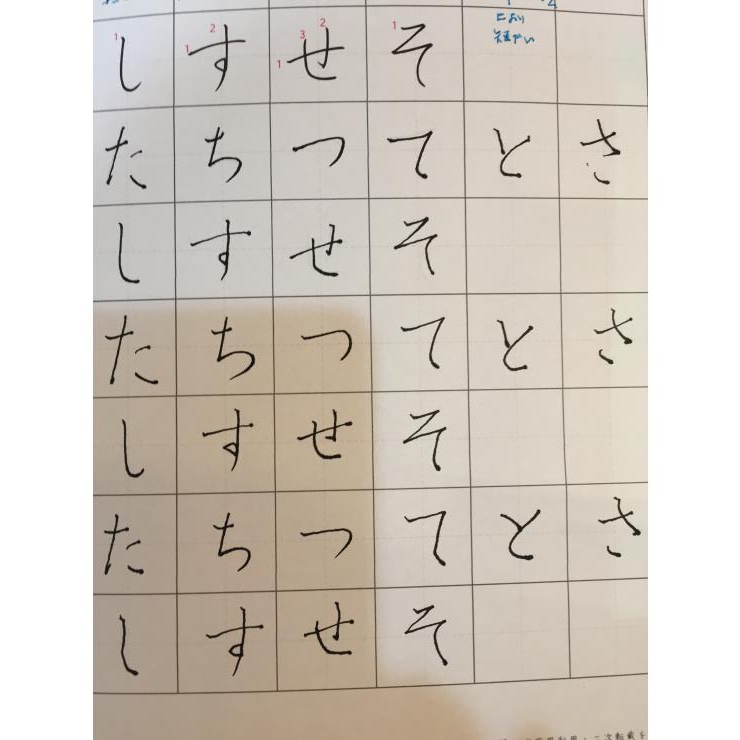 1 し 1 2 す 1 3 2 せ 1 そ
たちつてとさ
しすせそ
たちつてとさ
しすせそ
たちつてとさ
しすせそ
二次転載を